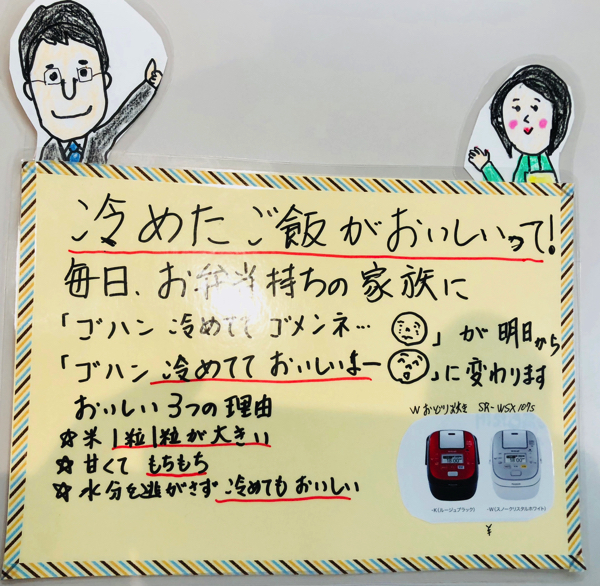 冷めたご飯がおいしいって!
毎日、お弁当持ちの家族に
「ゴハン 冷めてて ゴメンネ…」が明日から
「ゴハン 冷めてて おいしいよー」に変わります
おいしい3つの理由
☆米1粒1粒が大きい
☆甘くて もちもち
☆水分を逃がさず 冷めてもおいしい
Wおどり炊き SR-WSX107S
-K(ルージュブラック)
-W(スノークリスタルホワイト)
¥